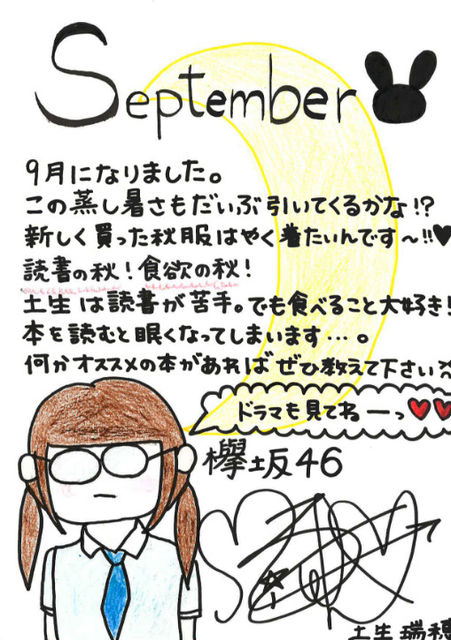 September
9月になりました。
この蒸し暑さもだいぶ引いてくるかな!?
新しく買った秋服はやく着たいんです〜!!♥
読書の秋!食欲の秋!
土生は読書が苦手。でも食べること大好き!
本を読むと眠くなってしまいます…。
何かオススメの本があればぜひ教えて下さい
ドラマも見てねーっ♥♥
欅坂46
土生瑞穂